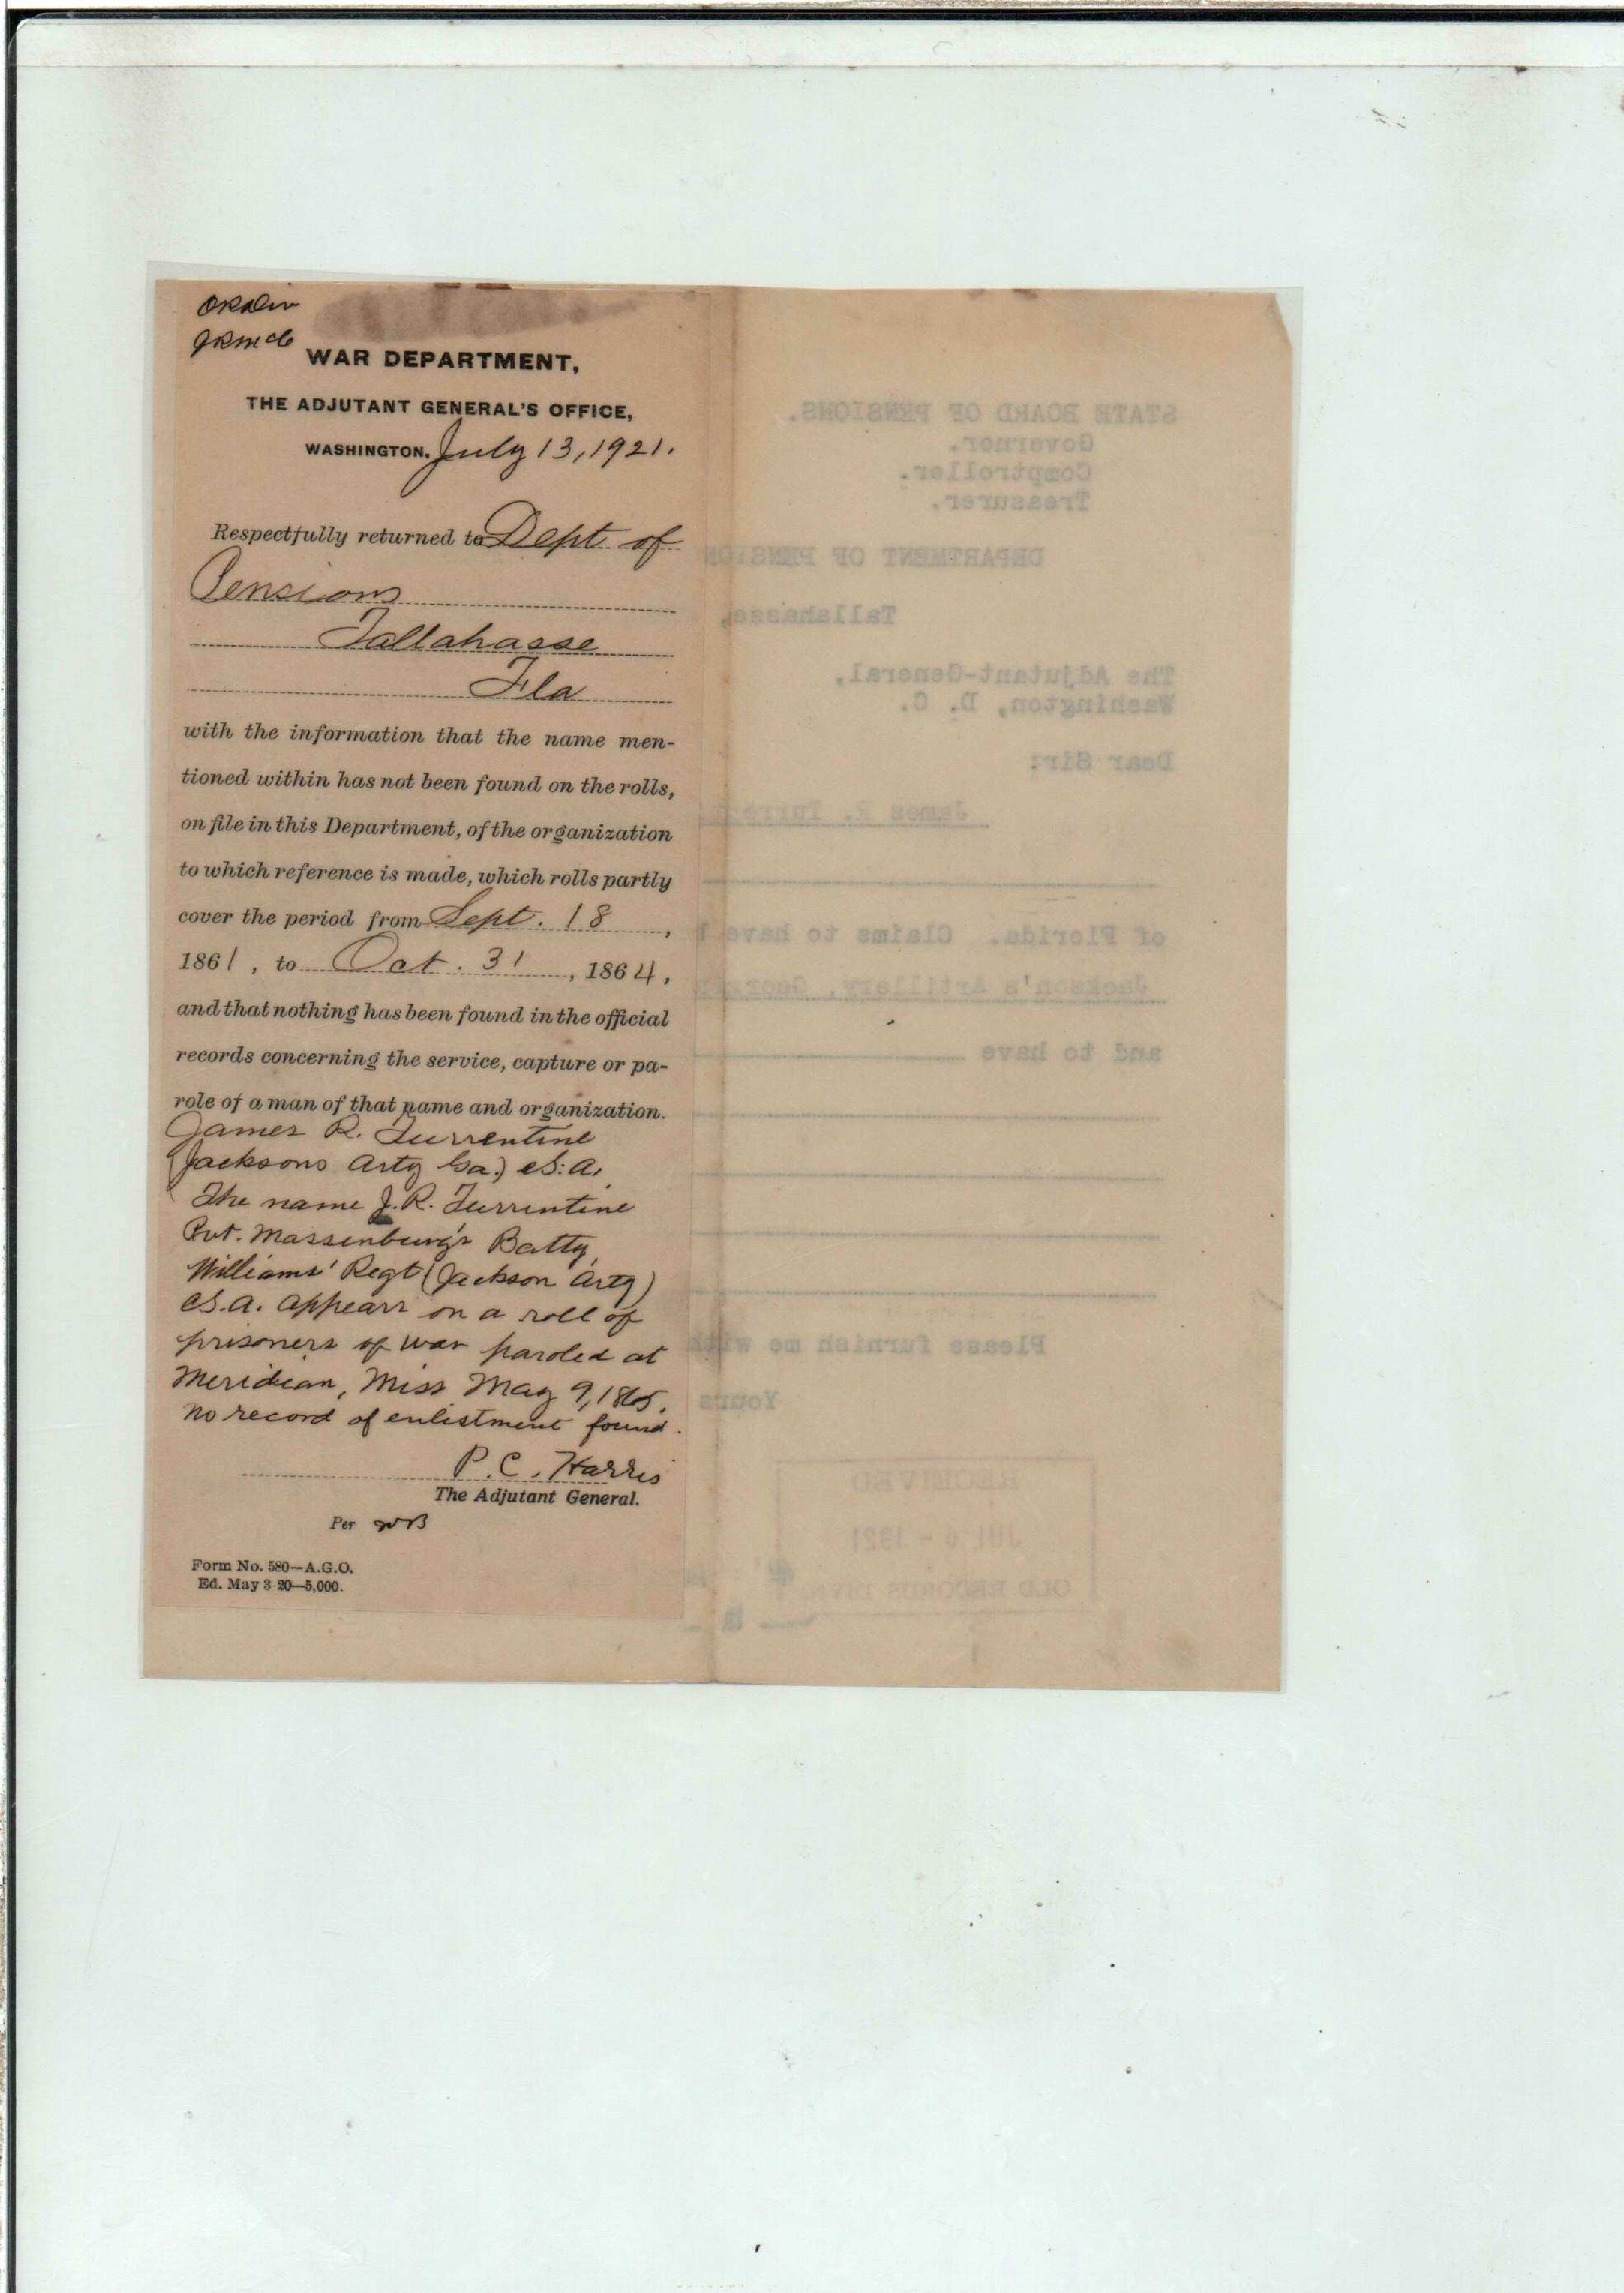 ORDiv
WAR DEPARTMENT,
THE ADJUTANT GENERAL'S OFFICE,
WASHINGTON. July 13, 1921.
Respectfully returned to Dept of
Pensions
Tallahasse
Fla
with the information that the name men-
tioned within has not been found on the rolls,
on file in this Department, of the organization
to which reference is made, which rolls partly
cover the period from Sept. 18,
1861, to Oct. 31, 1864,
and that nothing has been found in the official
records concerning the service, capture or pa-
role of a man of that name and organization.
James R. Turrentine
(Jacksons Arty Ga.) C.S.A.
The name J. R. Turrentine
Pvt. Massenburg's Batty,
Williams' Regt (Jackson Arty)
C.S.A. appears on a roll of
prisoners of war paroled at
Meridian, Miss May 9, 1865.
No record of enlistment found.
P. C. Harris
The Adjutant General.
Per
Form No. 580—A.G.O.
Ed. May 3-20—5,000.
STATE BOARD OF PENSIONS.
Governor.
Comptroller.
Treasurer.
DEPARTMENT OF PENSION
Tallahassee,
The Adjutant-General,
Washington, D. C.
Dear Sir:
James R. Turre
of Florida. Claims to have
Jackson's Artillery, Geor
and to have
Please furnish me with
Yours
JUL 6 - 1921
OLD RECORDS